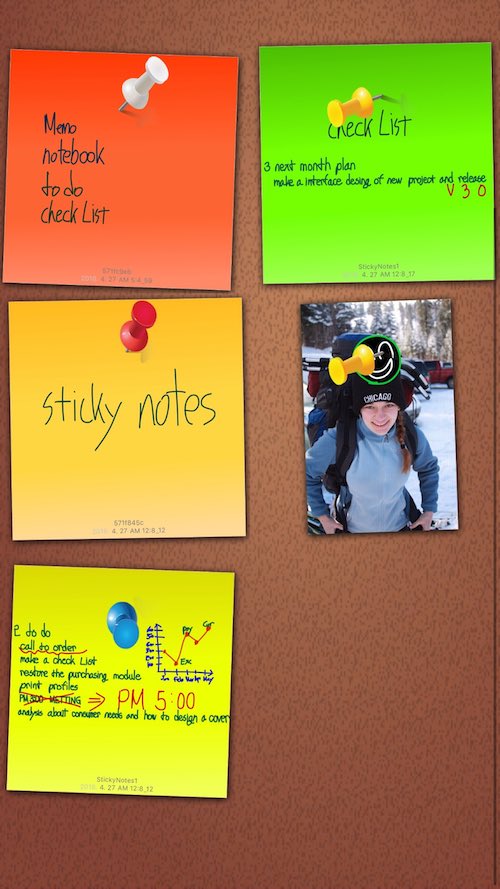 Memo
notebook
to do
check List
571fc9eb
2016. 4. 27 AM 5:4_59
check List
3 next month plan
make a interface desing of new project and release
V 3 0
StickyNotes1
2016. 4. 27 AM 12:8_17
sticky notes
571f845c
2016. 4. 27 AM 12:8_12
CHICAGO
2 to do
call to order
make a check List
restore the purchasing module
print profiles
PM 3:00 METTING ⇒ PM 5:00
analysis about consumer needs and how to design a cover
Ex
StickyNotes1
2016. 4. 27 AM 12:8_12